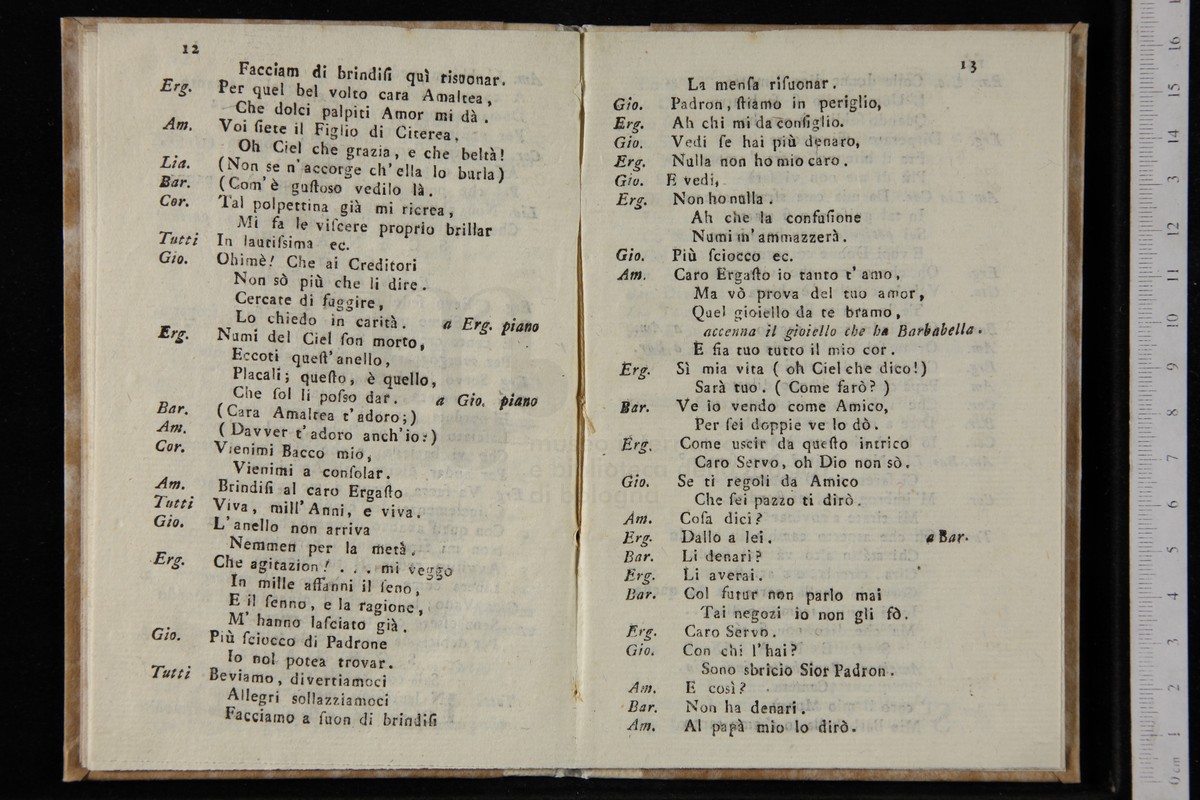 12
Facciam di brindiſi quì risuonar.
Erg. Per quel bel volto cara Amaltea,
Che dolci palpiti Amor mi dà.
Am. Voi ſiete il Figlio di Citerea.
Oh Ciel che grazia, e che beltà!
Lia. (Non se n'accorge ch'ella lo burla)
Bar. (Com'è guſtoso vedilo là.
Cor. Tal polpettina già mi ricrea,
Mi fa le viſcere proprio brillar
Tutti In lautiſsima ec.
Gio. Ohimè! Che ai Creditori
Non sò più che li dire.
Cercate di fuggire,
Lo chiedo in carità. a Erg. piano
Erg. Numi del Ciel ſon morto,
Eccoti queſt'anello,
Placali; queſto, è quello,
Che ſol li poſso dar. a Gio. piano
Bar. (Cara Amaltea t'adoro;)
Am. (Davver t'adoro anch'io:)
Cor. Vienimi Bacco mio,
Vienimi a conſolar.
Am. Brindiſi al caro Ergaſto
Tutti Viva, mill'Anni, e viva.
Gio. L'anello non arriva
Nemmen per la metà.
Erg. Che agitazion! . . . mi veggo
In mille affanni il ſeno,
E il ſenno, e la ragione,
M' hanno laſciato già.
Gio. Più ſciocco di Padrone
Io nol potea trovar.
Tutti Beviamo, divertiamoci
Allegri sollazziamoci
Facciamo a ſuon di brindiſi
13
La menſa riſuonar.
Gio. Padron, ſtiamo in periglio,
Erg. Ah chi mi da conſiglio.
Gio. Vedi ſe hai più denaro,
Erg. Nulla non ho mio caro.
Gio. E vedi,
Erg. Non ho nulla.
Ah che la confuſione
Numi m'ammazzerà.
Gio. Più ſciocco ec.
Am. Caro Ergaſto io tanto t'amo,
Ma vò prova del tuo amor,
Quel gioiello da te bramo,
accenna il gioiello che ha Barbabella.
E ſia tuo tutto il mio cor.
Erg. Sì mia vita ( oh Ciel che dico!)
Sarà tuo. ( Come farò? )
Bar. Ve io vendo come Amico,
Per ſei doppie ve lo dò.
Erg. Come uscir da queſto intrico
Caro Servo, oh Dio non sò.
Gio. Se ti regoli da Amico
Che ſei pazzo ti dirò.
Am. Coſa dici?
Erg. Dallo a lei. a Bar.
Bar. Li denari?
Erg. Li averai.
Bar. Col futur non parlo mai
Tai negozi io non gli fò.
Erg. Caro Servo.
Gio. Con chi l'hai?
Sono sbricio Sior Padron.
Am. E così?
Bar. Non ha denari.
Am. Al papà mio lo dirò.
museo
e biblioteca
di bologna